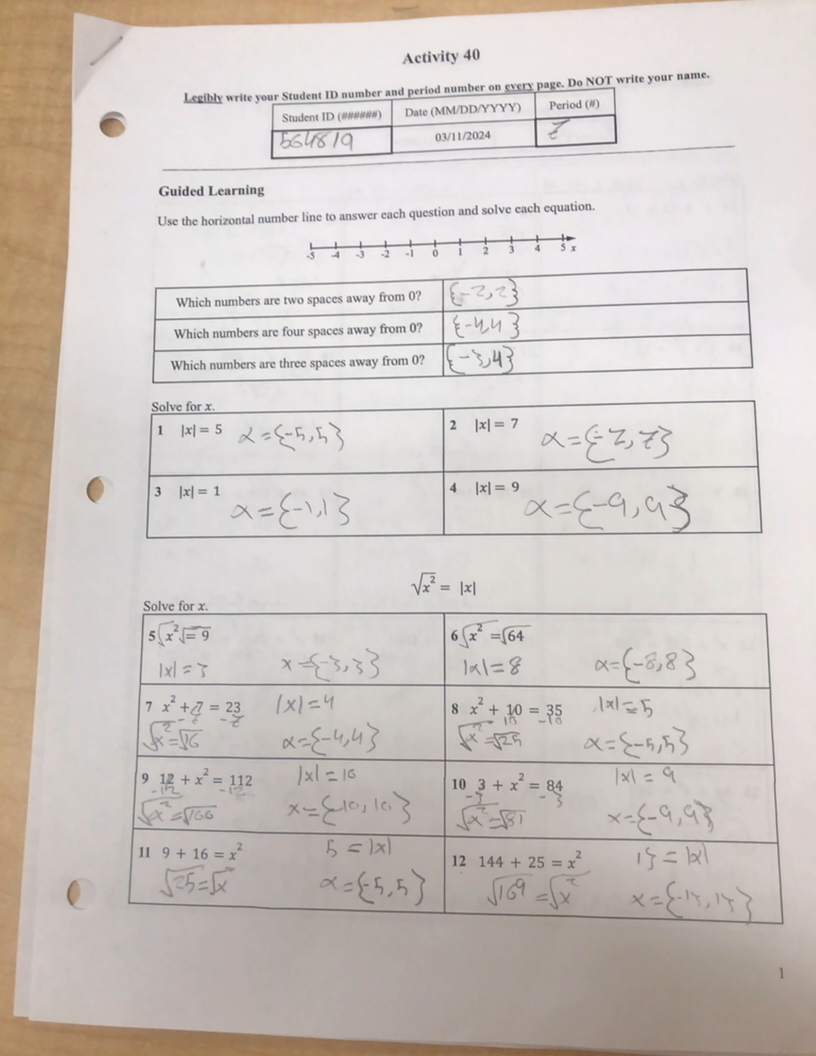 Activity 40
Legibly write your Student ID number and period number on every page. Do NOT write your name.
Student ID (######) Date (MM/DD/YYYY) Period (#)
564819 03/11/2024
Guided Learning
Use the horizontal number line to answer each question and solve each equation.
-5 -4 -3 -2 -1 0 1 2 3 4 5 x
Which numbers are two spaces away from 0? {-2,2}
Which numbers are four spaces away from 0? {-4,4}
Which numbers are three spaces away from 0? {-3,4}
Solve for x.
1 |x| = 5 x={-5,5}
2 |x| = 7 x={-7,7}
3 |x| = 1 x={-1,1}
4 |x| = 9 x={-9,9}
√x² = |x|
Solve for x.
5 √x² √= 9
|x|=3 x={-3,3}
6 √x² =√64
|x|=8 x={-8,8}
7 x² + 7 = 23 |x|=4
-7 -7
√x²=√16 x={-4,4}
8 x² + 10 = 35 |x|=5
-10 -10
√x²=√25 x={-5,5}
9 12 + x² = 112 |x|=10
-12 -12
√x²=√100 x={-10,10}
10 3 + x² = 84 |x|=9
-3 -3
√x²=√81 x={-9,9}
11 9 + 16 = x² 5=|x|
√25=√x² x={-5,5}
12 144 + 25 = x² 13=|x|
√169=√x² x={-13,13}
1